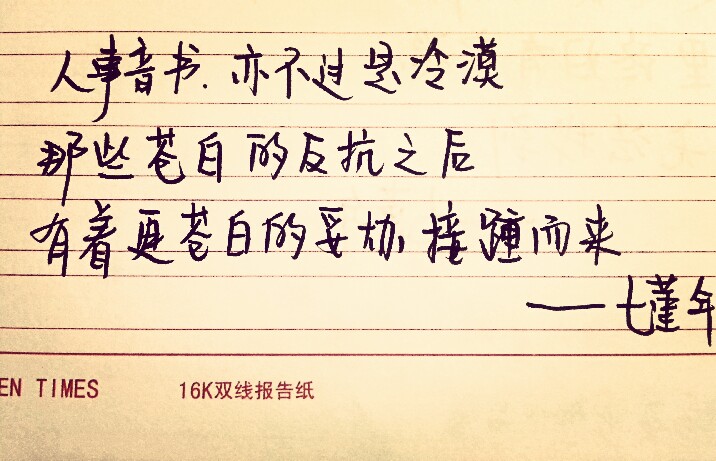 人事音书.亦不过是冷漠
那些苍白的反抗之后
有着更苍白的妥协,接踵而来
——七堇年
EN TIMES 16K双线报告纸